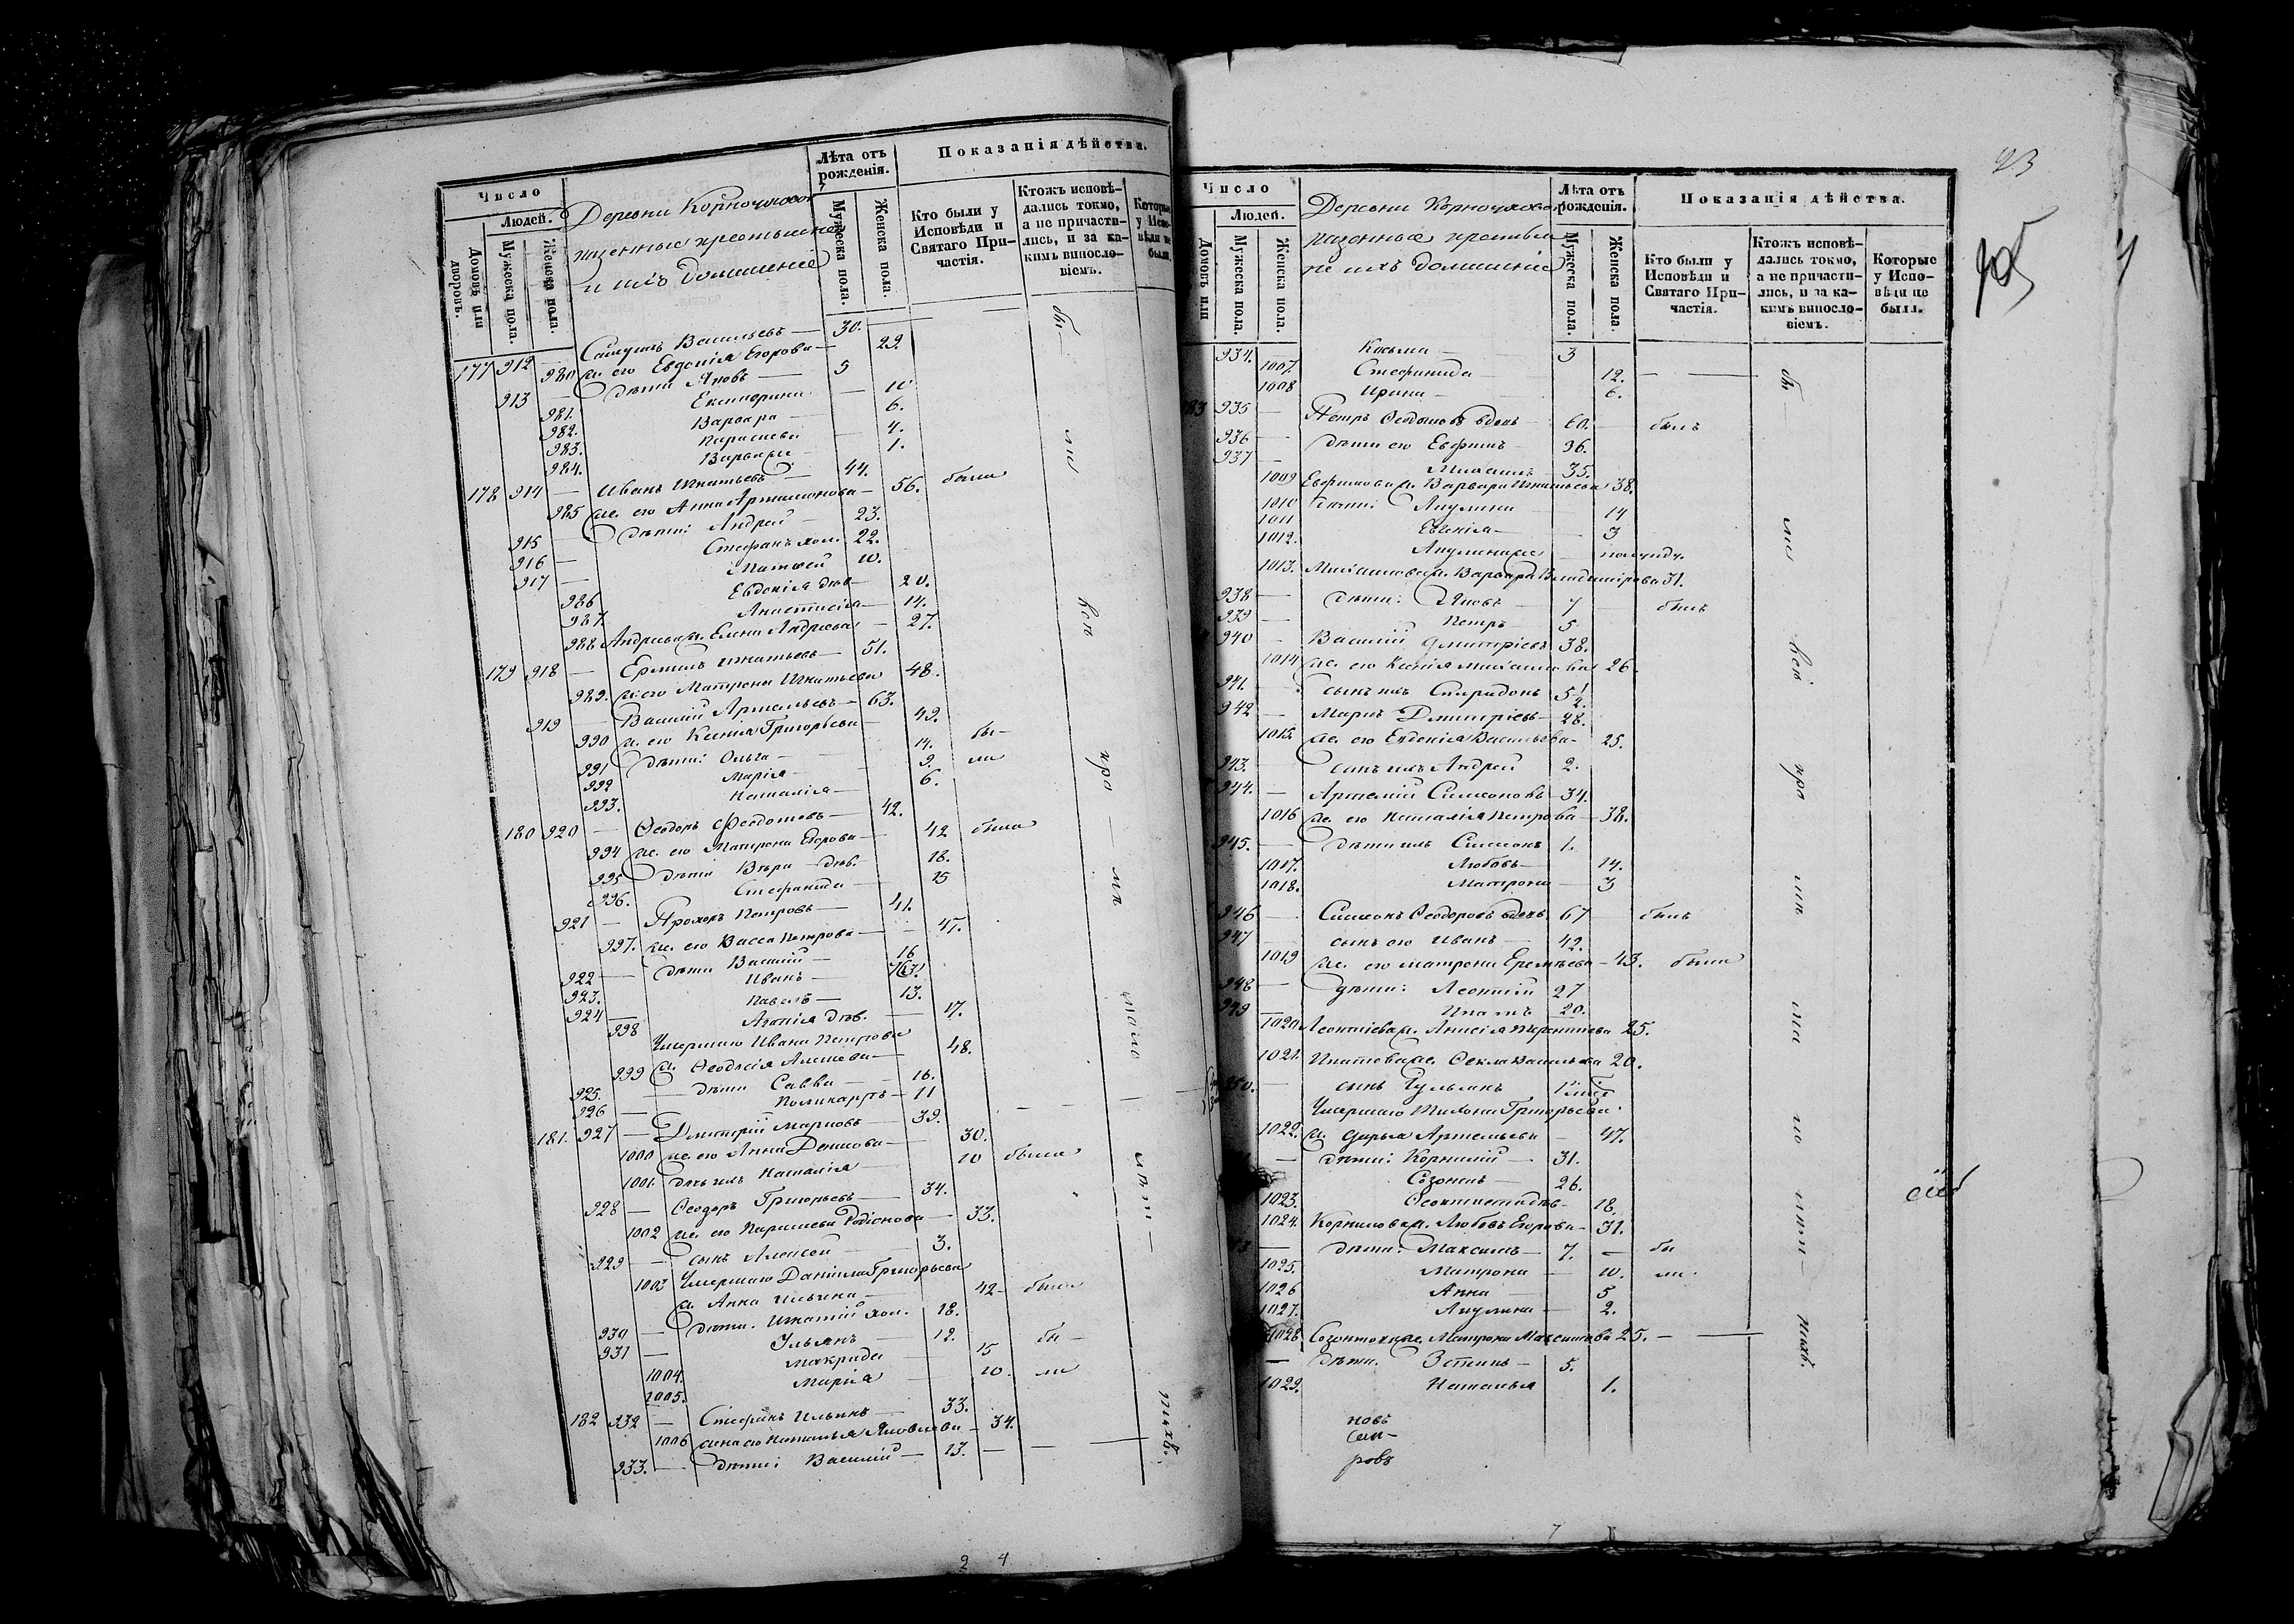 Число
Людей.
Домовъ или дворовъ.
Мужеска пола.
Женска пола.
Деревни
казенные крестьяне
и ихъ домашніе
Лѣта отъ рожденія.
Мужеска пола.
Женска пола.
Показанія дѣйства.
Кто были у Исповѣди и Святаго Причастія.
Ктожъ исповѣдались токмо, а не причастились, и за какимъ винословіемъ.
Которые у Исповѣди не были.
177 912 — Васильевъ — 30.
980 ж. его Евдокія Егорова — 29.
913 — дѣти Яковъ — 5
981. Екатерина — 10
982. Варвара — 6.
983. Параскева — 4.
984. Варвара — 1.
178 914 — Иванъ Игнатьевъ — 44.
985 ж. его Анна Артамонова — 56. были
915 — дѣти: Андрей — 23.
916 — Стефанъ хол. 22.
917 — Матвей 10.
986 Евдокія дѣв — 20.
987. Анастасія — 14.
988 Андреева ж. Елена Андреева — 27.
179 918 — Ермилъ Игнатьевъ — 51.
989. ж. его Матрона Игнатьева 48.
919 — Василій Артемьевъ — 63.
990 ж. его Ксенія Григорьева — 49.
991 дѣти: Ольга — 14. бы-
992 Марія — 9. ли
993. Наталія — 6.
180 920 — Ѳеодоръ Ѳеодотовъ — 42.
994 ж. его Матрона Егорова — 42 были
995 дѣти Вѣра дѣв. 18.
996. Стефанида — 15
921 — Прохоръ Петровъ — 41.
997. ж. его Васса Петрова — 45.
922 — дѣти Василій — 16
923. Иванъ —
924 — Павелъ — 13.
998 Агафія дѣв. — 17.
Умершаго Ивана Петрова
999 ж. Ѳеодосія Алексеева — 48.
925. — дѣти Савва — 16.
926 — Поликарпъ — 11
181. 927 — Дмитрій Марковъ — 39.
1000 ж. его Анна Денисова — 30.
1001. дочь ихъ Наталія — 10 были
928 — Ѳеодоръ Григорьевъ — 34.
1002 ж. его Параскева Родіонова — 33.
929 — сынъ Алексей — 3.
1003 Умершаго Даніила Григорьева
ж. Анна Ильина — 42 — была
930 — дѣти. Игнатій хол. 18.
931 — Ульянъ — 12. бы-
1004. Макрида — 15
1005. Марія — 10. ли
182 932 — Стефанъ Ильинъ — 33.
1006 жена его Наталья Яковлева — 34.
933. — дѣти: Василій — 13. —
бы-
ли
все
про
мало
лѣт
ихъ.
2 4
23
Число
Людей.
Домовъ или
Мужеска пола.
Женска пола.
Деревни
казенные крестья
не ихъ домашніе
Лѣта отъ рожденія.
Мужеска пола.
Женска пола.
Показанія дѣйства.
Кто были у Исповѣди и Святаго Причастія.
Ктожъ исповѣдались токмо, а не причастились, и за какимъ винословіемъ.
Которые у Исповѣди не были.
934. Косьма — 3
1007. Стефанида — 12.
1008 Ирина — 6.
183 935 — Петръ Ѳеодотовъ вдовъ 60. — былъ
936 — дѣти его Евфимъ — 36.
937 — Михаилъ — 35.
1009 Евфимова ж. Варвара Игнатьева 38.
1010 дѣти: Акулина — 14
1011 Евгенія — 3
1012. Акулина же — полугод.
1013. Михаилова ж. Варвара Владимірова 31.
938 — дѣти: Яковъ — 7 — былъ
939 — Петръ — 5
940 — Василій Дмитріевъ 38.
1014 ж. его Ксенія Михаилова 26.
941. — сынъ ихъ Спиридонъ 5½
942 — Маркъ Дмитріевъ — 28.
1015. ж. его Евдокія Васильева — 25.
943. — сынъ ихъ Андрей 2.
944. — Артемій Симеоновъ — 34.
1016 ж. его Наталія Петрова — 38.
945. — дѣти ихъ Симеонъ 1.
1017. Любовь — 14.
1018. Матрона — 3
946 — Симеонъ Ѳеодоровъ вдовъ. 67 — былъ
947 — сынъ его Иванъ — 42.
1019 ж. его Матрона Еремѣева — 43. были
948 — дѣти: Леонтій 27
949 — Игнатъ 20.
1020 Леонтіева ж. Анисія Терентіева 25.
1021. Игнатова ж. Ѳекла Васильева 20.
950. — сынъ Гульянъ
Умершаго Тихона Григорьева
1022. ж. Дарья Артемьева — 47.
— дѣти: Корнилій — 31.
Созонтъ — 26.
1023. дѣв. 18.
1024. Корнилова ж. Любовь Егорова — 31.
— дѣти: Максимъ — 7. — бы
1025. Матрона — 10. ли.
1026 Анна — 5
1027. Акулина — 2.
1028. Созонтова ж. Матрона Максимова 25. —
— дѣти. — 5.
1029. Наталья 1.
бы
ли
все
про
ихъ.
новъ
Сем-
ровъ
7